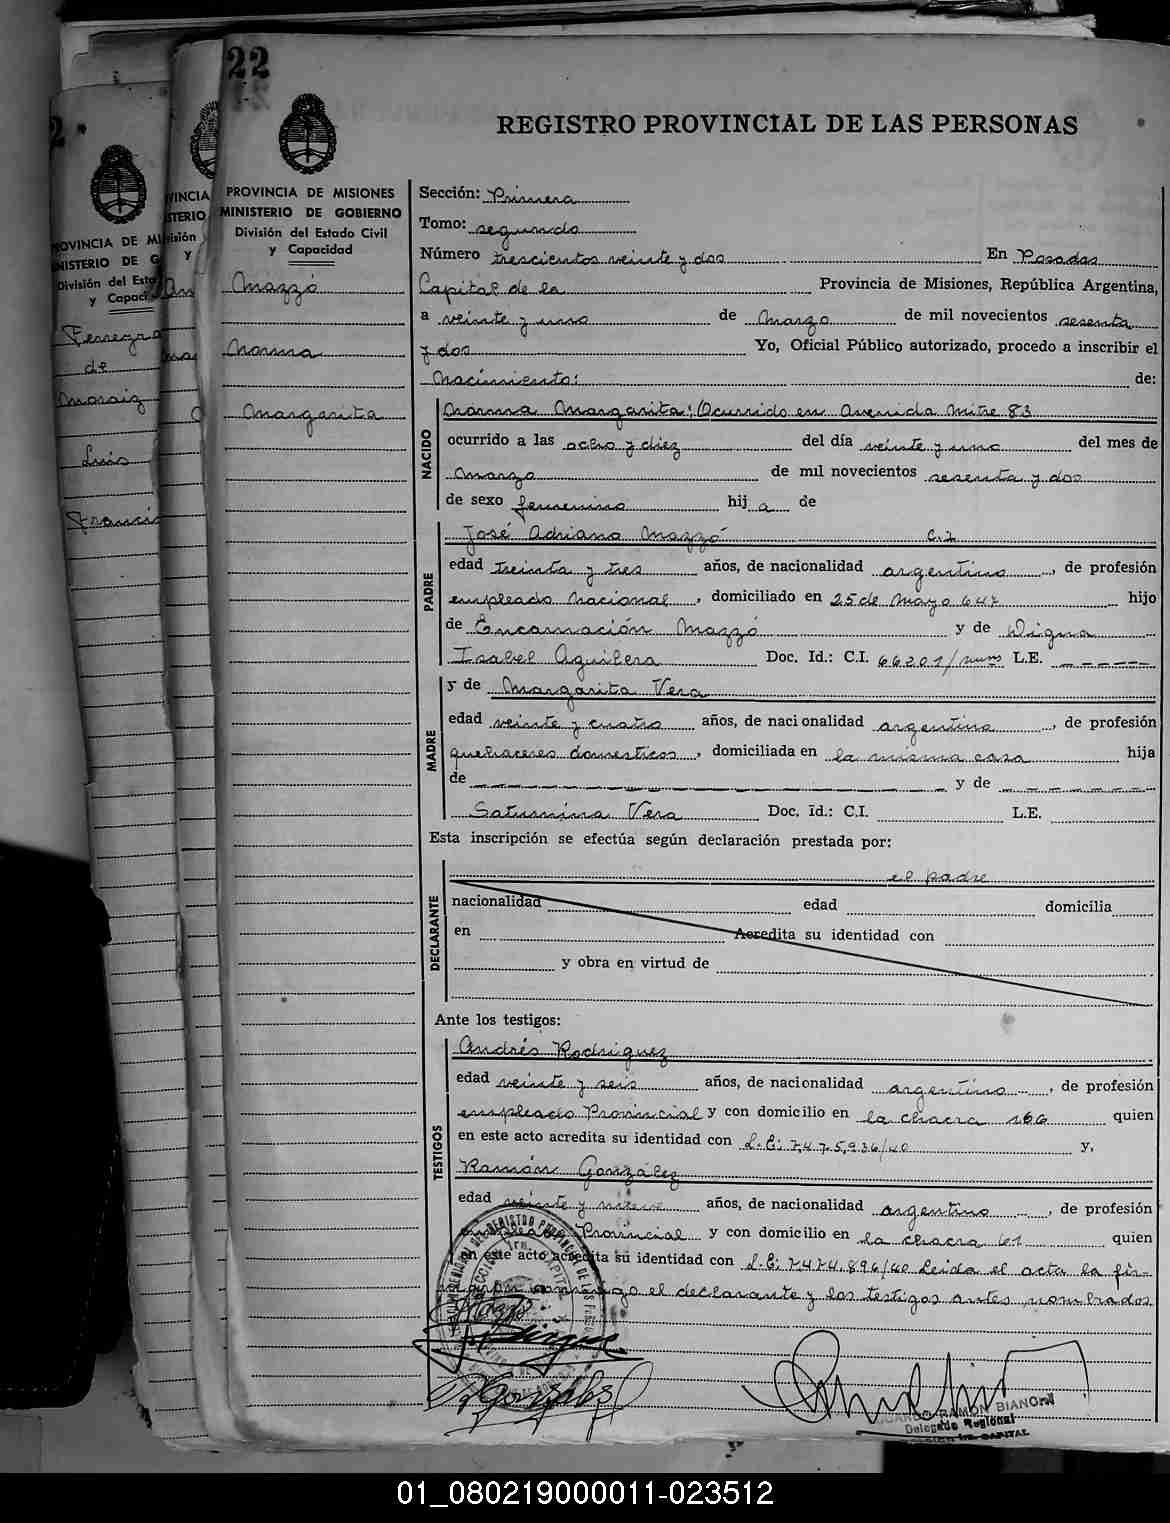 22
REGISTRO PROVINCIAL DE LAS PERSONAS
PROVINCIA DE MISIONES
MINISTERIO DE GOBIERNO
División del Estado Civil
y Capacidad
Mazzó
Norma
Margarita
Sección: Primera
Tomo: segundo
Número trescientos veinte y dos En Posadas
Capital de la Provincia de Misiones, República Argentina,
a veinte y uno de Marzo de mil novecientos sesenta
y dos Yo, Oficial Público autorizado, procedo a inscribir el
Nacimiento: de:
NACIDO
Norma Margarita; Ocurrido en Avenida Mitre 83
ocurrido a las ocho y diez del día veinte y uno del mes de
Marzo de mil novecientos sesenta y dos
de sexo femenino hija de
PADRE
José Adriano Mazzó C.I
edad treinta y tres años, de nacionalidad argentino, de profesión
empleado Nacional, domiciliado en 25 de Mayo 647 hijo
de Encarnación Mazzó y de Digna
Isabel Aguilera Doc. Id.: C.I. 66201/ L.E.
MADRE
y de Margarita Vera
edad veinte y cuatro años, de nacionalidad argentina, de profesión
quehaceres domesticos, domiciliada en la misma casa hija
de y de
Saturnina Vera Doc. Id.: C.I. L.E.
Esta inscripción se efectúa según declaración prestada por:
DECLARANTE
el padre
nacionalidad edad domicilia
en Acredita su identidad con
y obra en virtud de
Ante los testigos:
TESTIGOS
Andrés Rodriguez
edad veinte y seis años, de nacionalidad argentino, de profesión
empleado Provincial y con domicilio en la chacra 166 quien
en este acto acredita su identidad con L.E: 7,475,936/40 y,
Ramón González
edad veinte y nueve años, de nacionalidad argentino, de profesión
Provincial y con domicilio en la chacra 61 quien
en este acto acredita su identidad con L.E: 7474.896/40 Leida el acta la fir-
conmigo el declarante y los testigos antes nombrados
Mazzó
R González
RAMON BIANCHI
Delegado Regional
CAPITAL
2
PROVINCIA DE MI
MINISTERIO DE G
División del Esta
y Capaci
Ferreyra
de
Moraiz
Luis
Francis
01_080219000011-023512